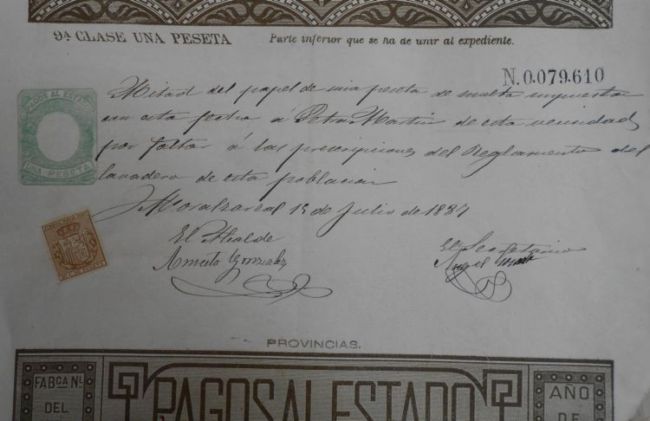 9ª CLASE UNA PESETA Parte inferior que se ha de unir al expediente.
N.0.079.610
Mitad del papel de una peseta de multa impuesta
en esta fecha á Petra Martin de esta vecindad,
por faltar á las prescripciones del Reglamento del
lavadero de esta poblacion
Moralzarzal 15 de Julio de 1887
El Alcalde El Secretario
Aniceto Gonzalez Angel
UNA PESETA
PROVINCIAS.
FABCA NL. PAGOS AL ESTADO AÑO
DEL DE